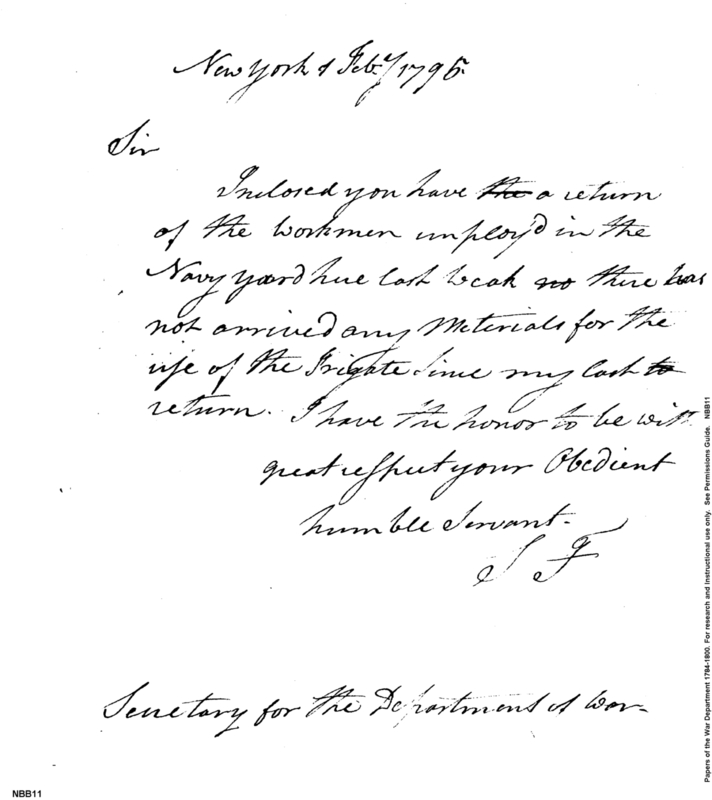 New York Feby 1795.
Sir
Inclosed you have the a return
of the workmen imploy'd in the
Navy yeard here last weak no there has
not arrived any Materials for the
use of the Frigate Since my last to
return. I have the honor to be with
great respect your Obedient
humble Servant.
J F
Secretary for the Department of War
NBB11
Papers of the War Department 1784-1800. For research and Instructional use only. See Permissions Guide. NBB11